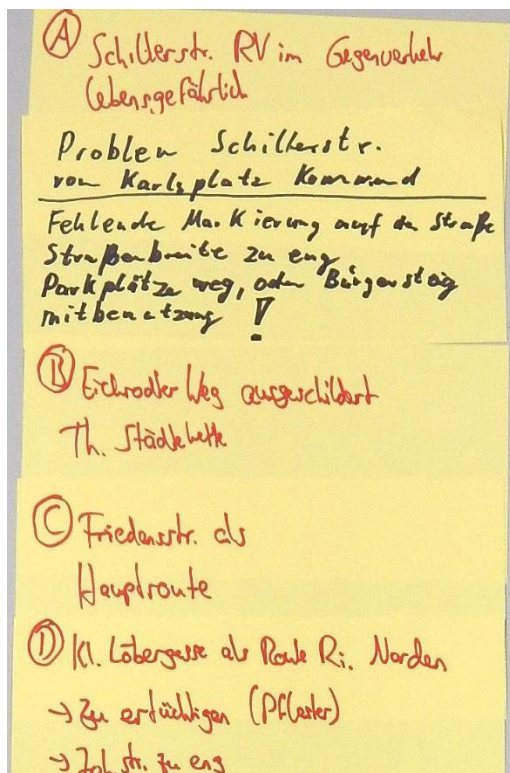 Ⓐ Schillerstr. RV im Gegenverkehr
lebensgefährlich
Problem Schillerstr.
von Karlsplatz kommend
Fehlende Markierung auf der Straße
Straßenbreite zu eng
Parkplätze weg, oder Bürgersteig
mitbenutzung !
Ⓑ Eichrodter Weg ausgeschildert
Th. Städtekette
Ⓒ Friedensstr. als
Hauptroute
Ⓓ Kl. Löbergasse als Route Ri. Norden
→ Zu ertüchtigen (Pflaster)
→ Joh.str. zu eng